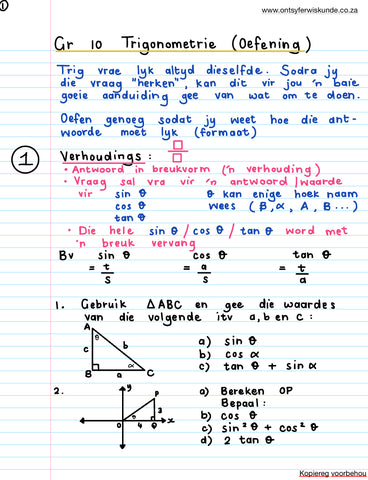 ①
www.ontsyferwiskunde.co.za
Gr 10 Trigonometrie (Oefening)
Trig vrae lyk altyd dieselfde. Sodra jy
die vraag "herken", kan dit vir jou 'n baie
goeie aanduiding gee van wat om te doen.
Oefen genoeg sodat jy weet hoe die ant-
woorde moet lyk (formaat)
① Verhoudings : □/□
• Antwoord in breukvorm ('n verhouding)
• Vraag sal vra vir 'n antwoord/waarde
vir sin θ θ kan enige hoek naam
cos θ wees (β, α, A, B...)
tan θ
• Die hele sin θ / cos θ / tan θ word met
'n breuk vervang
Bv sin θ cos θ tan θ
= t/s = a/s = t/a
1. Gebruik △ABC en gee die waardes
van die volgende itv a, b en c :
A θ c b B a α C
a) sin θ
b) cos α
c) tan θ + sin α
2. y P 3 θ 0 4 Q x
a) Bereken OP
Bepaal :
b) cos θ
c) sin² θ + cos² θ
d) 2 tan θ
Kopiereg voorbehou